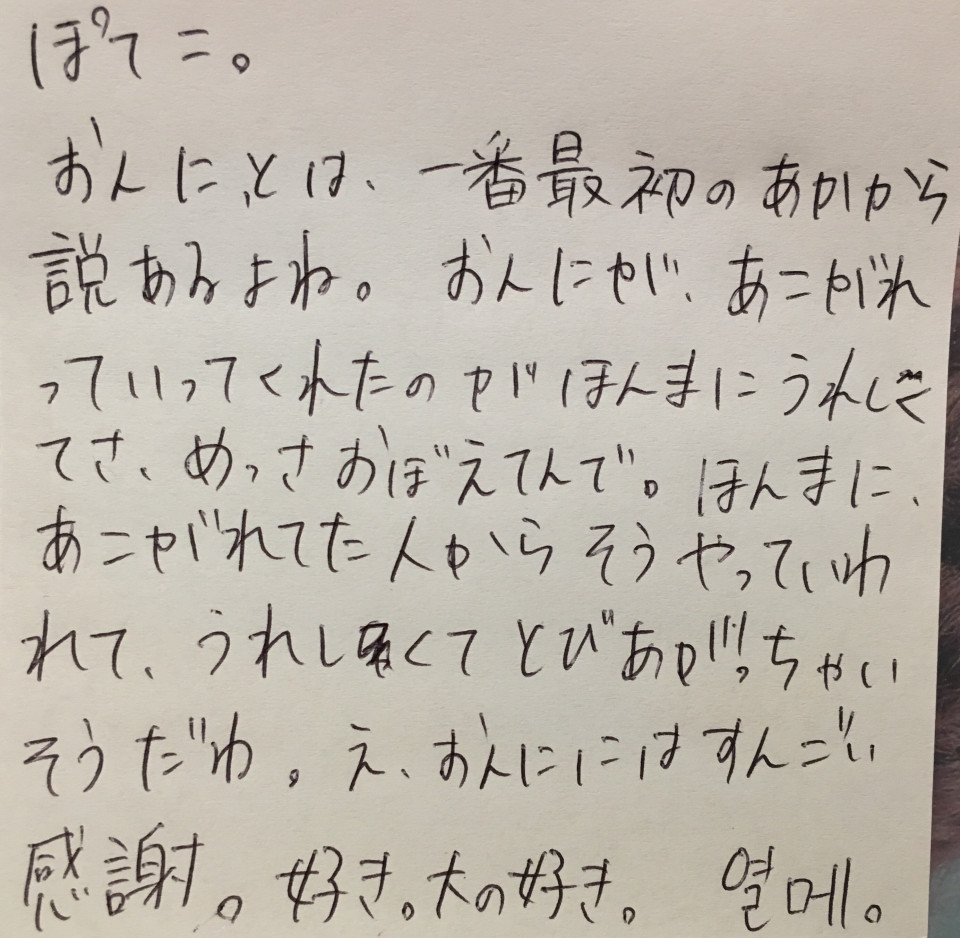 ぽてこ。
おんにとは、一番最初のあかから
説あるよね。おんにが、あこがれ
っていってくれたのがほんまにうれしく
てさ、めっさおぼえてんで。ほんまに、
あこがれてた人からそうやっていわ
れて、うれしくてとびあがっちゃい
そうだわ。え、おんににはすんごい
感謝。好き。大の好き。 열매。